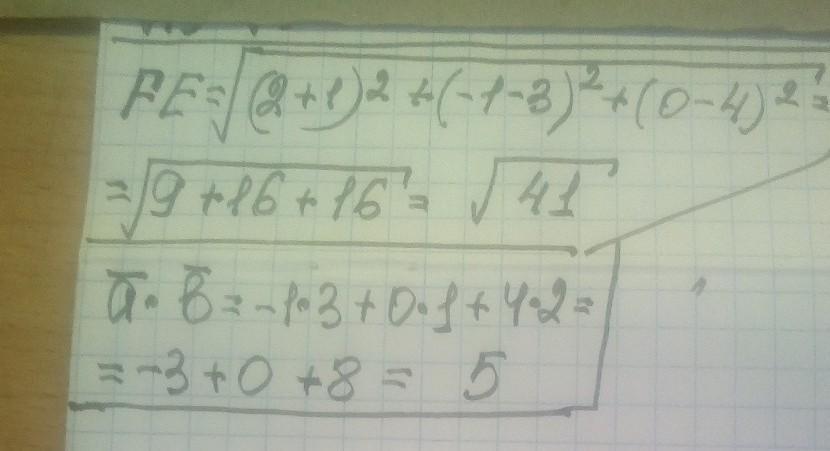 FE=√(2+1)²+(-1-3)²+(0-4)²=
=√9+16+16= √41
a̅·b̅=-1·3+0·1+4·2=
=-3+0+8= 5